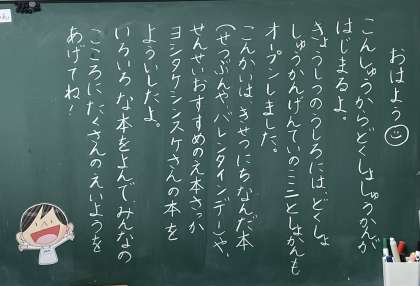 おはよう
こんしゅうからどくしょしゅうかんが
はじまるよ。
きょうしつのうしろには、どくしょ
しゅうかんげんていのミニとしょかんも
オープンしました。
こんかいは、きせつにちなんだ本
(せつぶんや、バレンタインデー)や、
せんせいおすすめのえ本さっか
ヨシタケシンスケさんの本を
よういしたよ。
いろいろな本をよんでみんなの
こころにたくさんのえいようを
あげてね!